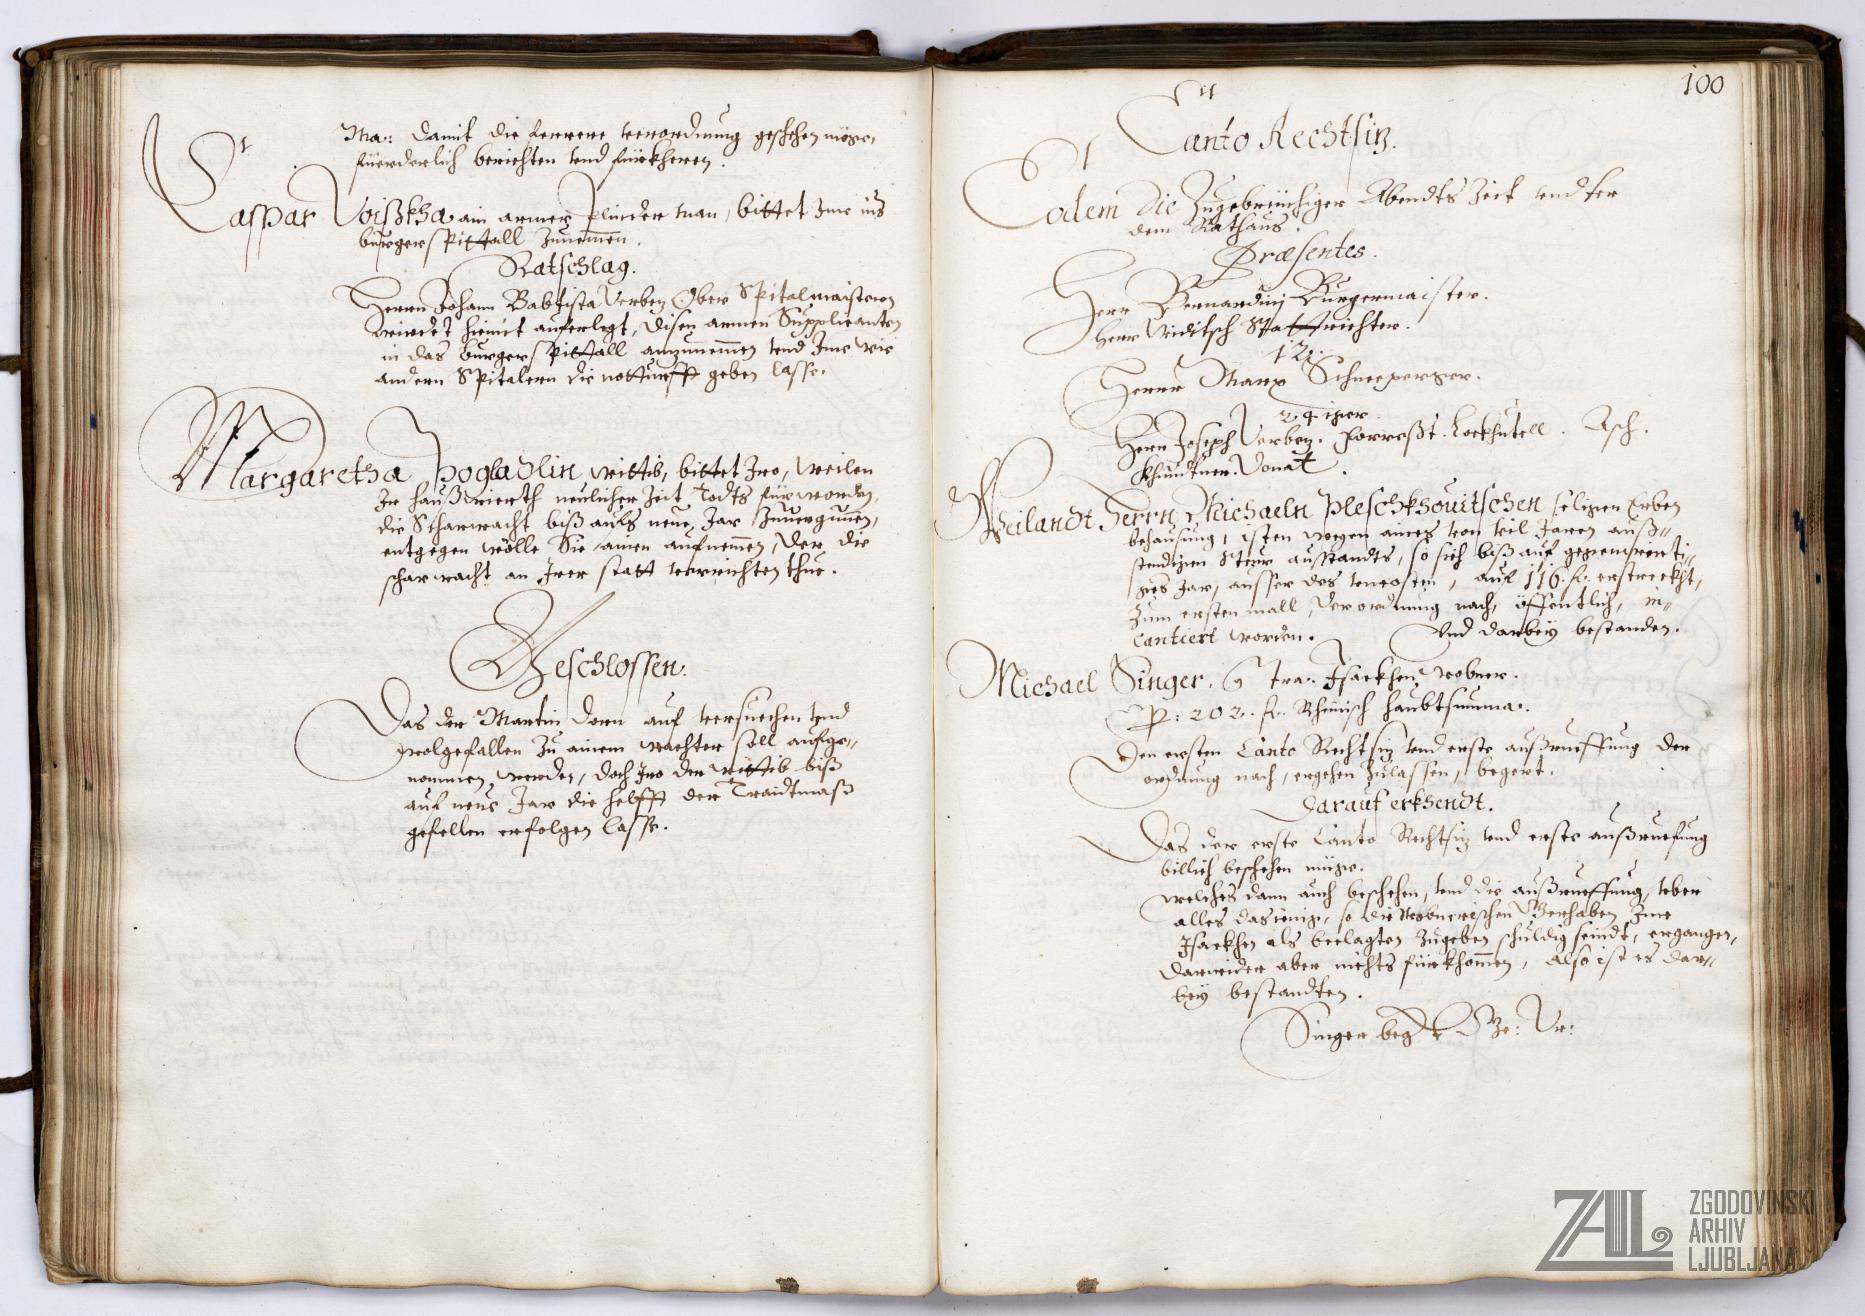 Ma: damit die ferrere verordnung geschehen möge,
füerderlich berichten vnd fürkheren.
Caspar Voißkha ain armer plinder man, bittet Ime ins
burgerspittall zunemen.
Ratschlag.
Herrn Johann Babtista Verben Ober Spitalmaistern
wirdet hiemit auferlegt, disen armen Supplicanten
in das burgerspittall anzunemmen vnd Ime wie
andern Spitalern die notturfft geben lasse.
Margaretha Pogladlin wittib, bittet Iro, weilen
Ir haußwierth neulicher Zeit Todts fürworden,
die Scharwacht biß aufs neue Jar Zuuergunen,
entgegen wölle Sie ainen aufnemmen, der die
scharwacht an Irer statt verrichten thue.
Geschlossen.
Das der Martin Dorn auf versuechen vnd
wolgefallen zu ainem wachter soll aufge-
nommen werden, doch Iro der wittib biß
auf neus Jar die helfft der Traidtmaß
gefellen erfolgen lasse.
100
Canto Rechtsiz.
Eodem die Zugebrüchiger Abendts Zeit vnd
dem Rathaus.
Præsentes.
Herr Bernardinj Burgermaister.
Herr Viditsch Stattrichter.
12.
Herrn Marx Schneeperger.
24 iger
Herrn Joseph Verben. Posch.
Khundtner. Donat.
Weilandt Herrn Michaeln Pleschkhouitschen seligen Erben
behausung, ist en wegen aines von vil Jaren auß-
stendigen Steur ausstandts, so sich biß auf gegenwerti-
ges Jar, ausser des vncosten, auf 116. fl. erstreckht,
zum ersten mall, der ordnung nach, öffentlich, in-
cantiert worden. Vnd darbey bestanden.
Michael Singer. Isackhen wobner.
per: 202. fl. Rheinisch haubtsumma.
Den ersten Canto Rechtsiz vnd erste außrueffung der
ordnung nach, ergehen Zulassen, begert.
Darauf erkhendt.
Das der erste Canto Rechtsiz vnd erste außruefung
billich beschehen müge.
welches dann auch beschehen, vnd die außrueffung, vber
alles das ienig, so die wobnerischen Gerhaben Ime
Isackhen als beclagten zugeben schuldig seindt, ergangen,
darwider aber nichts fürkhommen, Also ist es dar-
bey bestandten.
Singer beg t Ge: Vr:
ZAL
ZGODOVINSKI
ARHIV
LJUBLJANA